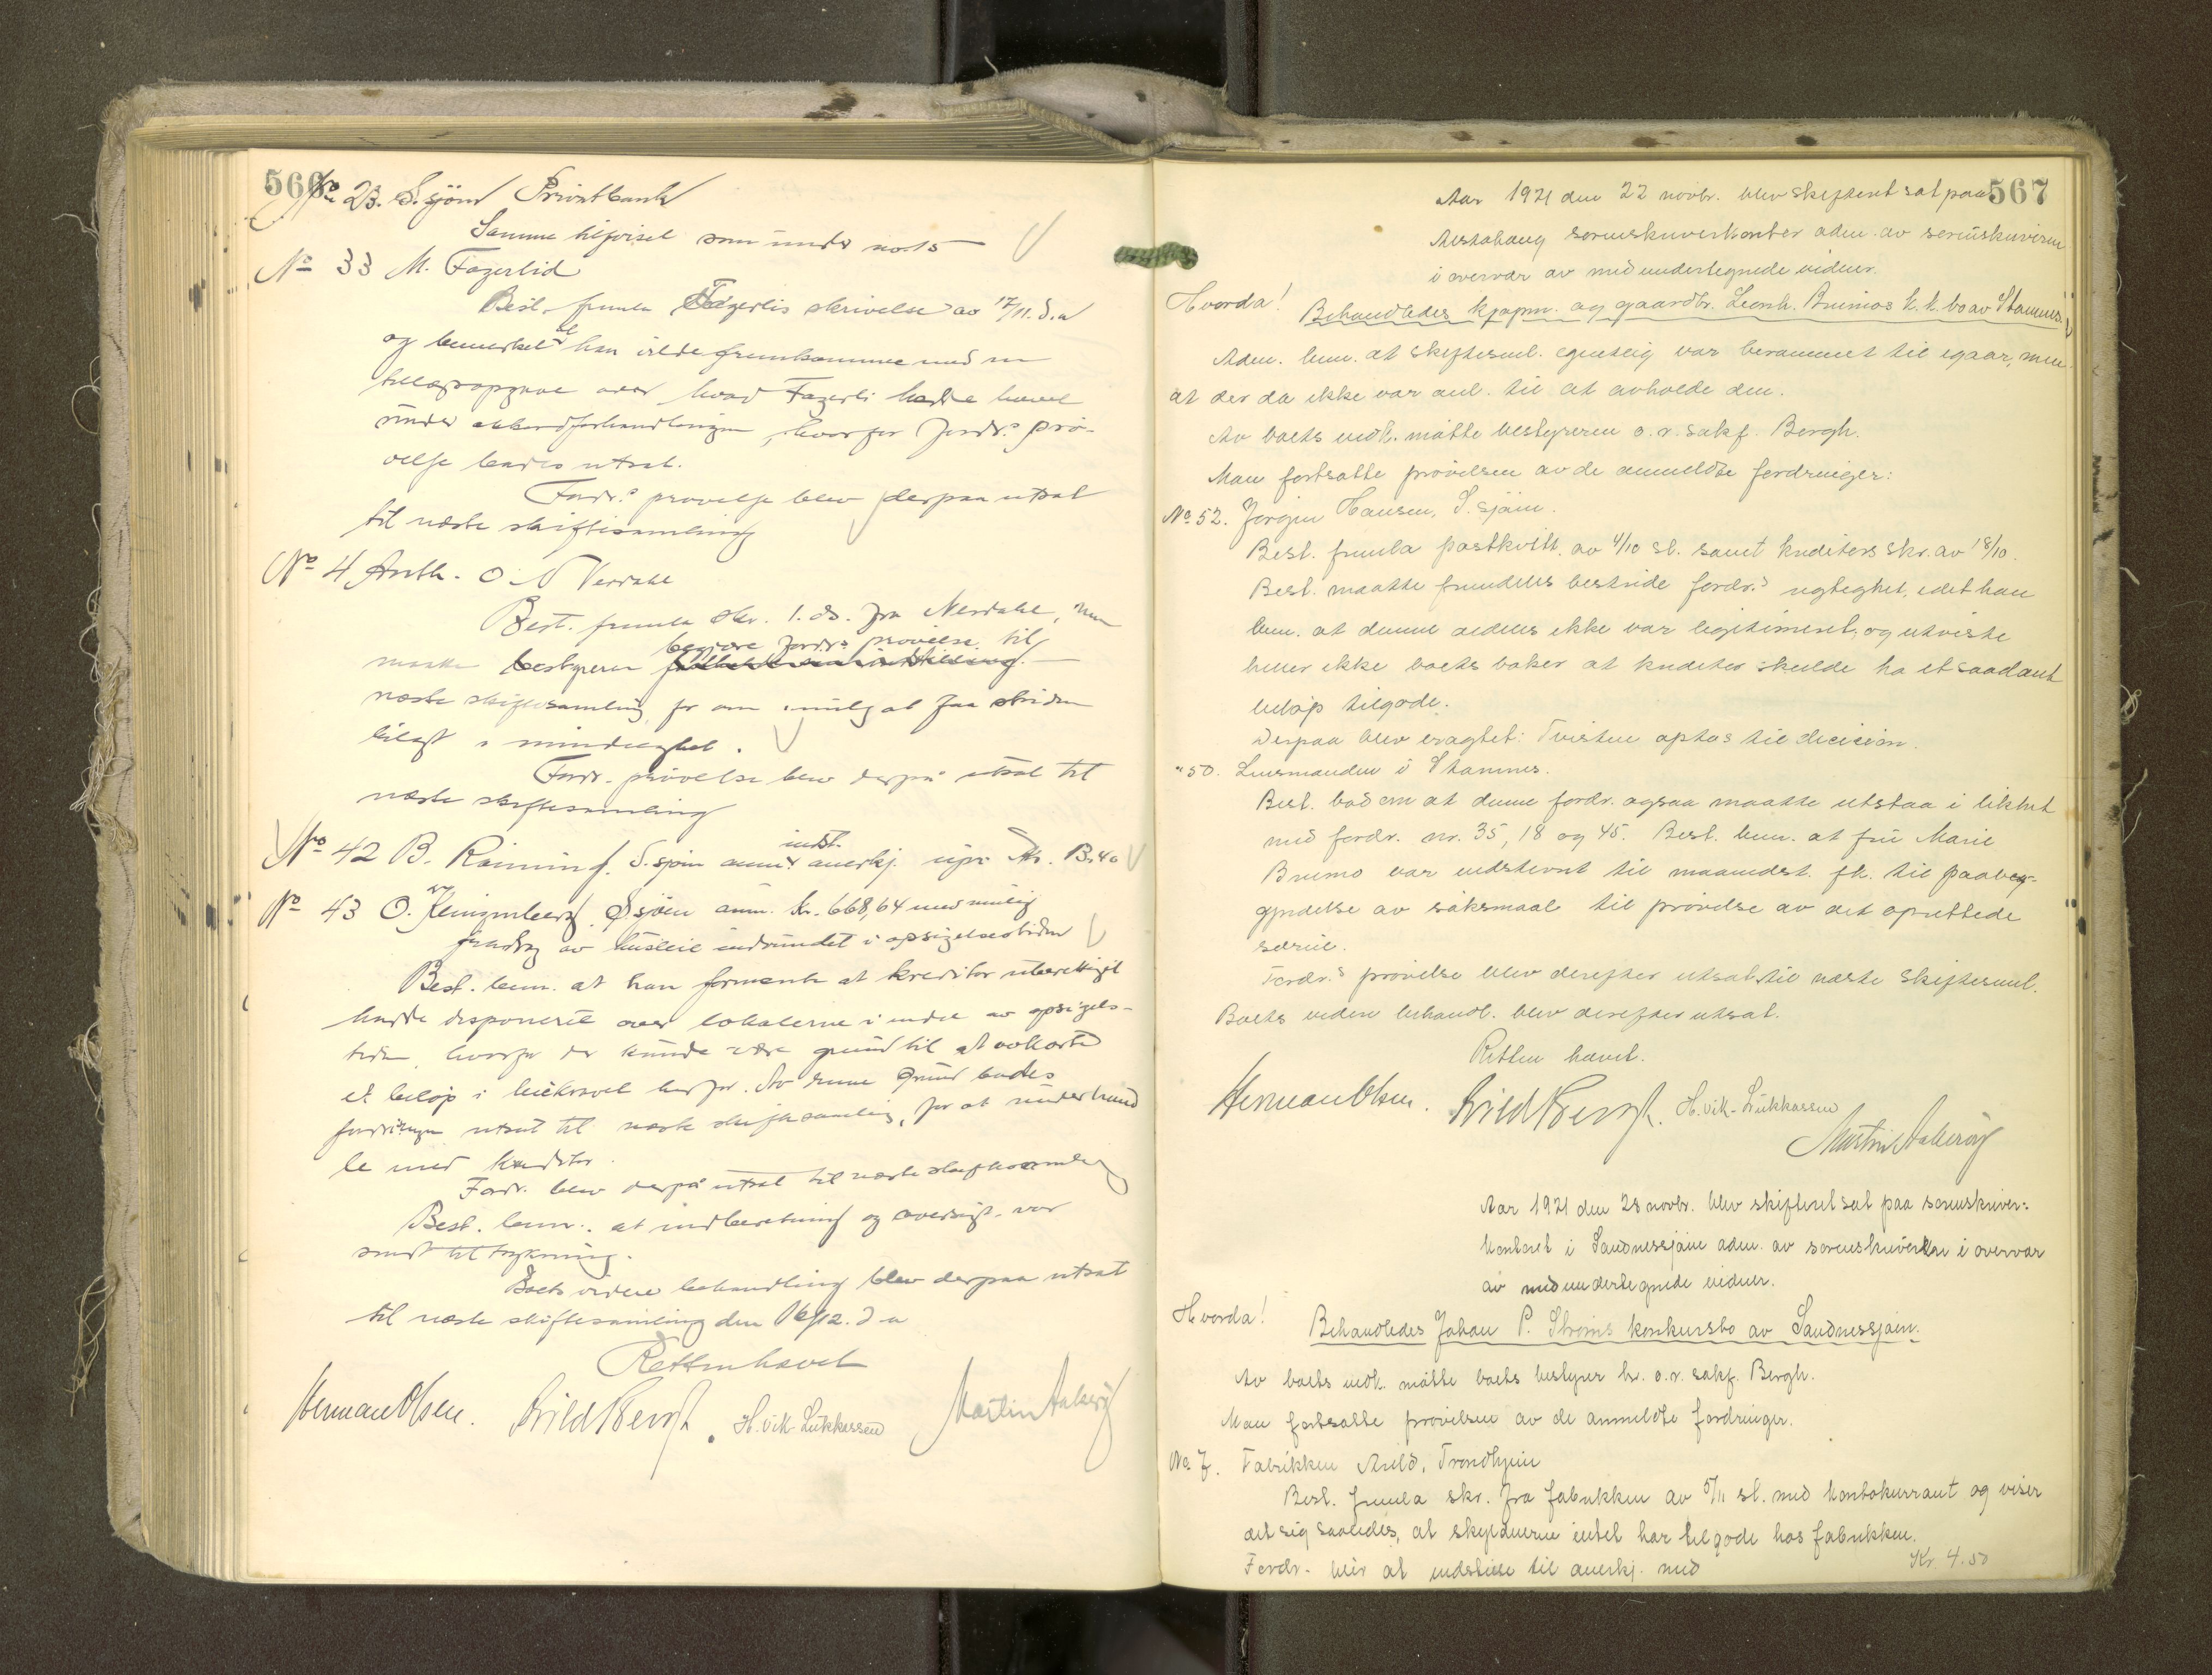 566
No 23. S.sjøen Privatbank
Samme tilføisel som under no 15
No 33 M. Fagerlid
Best. fremla Fagerlis skrivelse av 17/11 d.a
og bemerket at han vilde fremkomme med en
tillægsopgave over hvad Fagerli hadde hævet
under akkordforhandlingen, hvorfor fordr.s prø-
velse bades utsat.
Fordr.s prøvelse blev derpaa utsat
til næste skiftesamling
No 4 Anth. O. N Nerdahl
Best. fremla skr. 1. ds. fra Nerdahl, men
begjære fordr.s prøvelse til
maatte bestyreren
næste skiftesamling for om mulig at faa striden
bilagt i mindelighet.
Fordr. prøvelse blev derpå utsat til
næste skiftesamling
indst.
No 42 B. Reining S.sjøen anm. anerkj. upr. Kr. 13.40
No 43 O. Klingenberg S.sjøen anm. Kr. 668,64 med mulig
fradrag av husleie indvundet i opsigelsestiden
Best. bem. at han formente at kreditor uberettiget
hadde disponert over lokalerne i endel av opsigels-
tiden, hvorfor der kunde være grund til at avkorte
et beløp i leiekravet herfor. Av denne grund bades
fordringen utsat til næste skiftesamling, for at underhand
le med kreditor.
Fordr. blev derpå utsat til næste skiftesamling
Best. bem. at indberetning og oversigt var
sendt til trykning.
Boets videre behandling blev derpaa utsat
til næste skiftesamling den 16/12. d a
Retten hævet
Herman Olsen. Arild Bergh. H. Vik-Lukkassen Martin Aakerøy
567
Aar 1921 den 22 novbr. blev skifteret sat paa
Alstahaug sorenskriverkontor adm. av sorenskriveren
i overvær av medundertegnede vidner.
Hvorda!
Behandledes kjøpm. og gaardbr. Leonh. Brunos k.k. bo av Stamnes.
Adm. bem. at skiftesml. egentlig var berammet til igaar, men
at der da ikke var anl. til at avholde den.
Av boets vedk. møtte bestyreren o.r. sakf. Bergh.
Man fortsatte prøvelsen av de anmeldte fordringer:
No 52. Jørgen Hansen, S.sjøen.
Best. fremla postkvitt. av 4/10 sl. samt kreditors skr. av 18/10.
Best. maatte fremdeles bestride fordr.s rigtighet, idet han
bem. at denne aldeles ikke var legitimeret, og utviste
heller ikke boets bøker at kreditor skulde ha et saadant
beløp tilgode.
Derpaa blev eragtet: Tvisten optas til decision.
" 50. Lensmanden i Stamnes.
Best. bad om at denne fordr. ogsaa maatte utstaa i likhet
med fordr. nr. 35, 18 og 45. Best. bem. at fru Marie
Bruno var indstevnt til maanedst. fk. til paabey-
gyndelse av søksmaal til prøvelse av det oprettede
særeie.
Fordr.s prøvelse blev derefter utsat til næste skiftesml.
Boets videre behandl. blev derefter utsat.
Retten hævet.
Herman Olsen. Arild Bergh. H. Vik-Lukkassen
Martin Aakerøy
Aar 1921 den 28 novbr. blev skifteret sat paa sorenskriver-
kontoret i Sandnessjøen adm. av sorenskriveren i overvær
av medundertegnede vidner.
Hvorda!
Behandledes Johan P. Strøms konkursbo av Sandnessjøen.
Av boets vedk. møtte boets bestyrer hr. o.r. sakf. Bergh.
Man fortsatte prøvelsen av de anmeldte fordringer.
No 7. Fabrikken Arild, Trondhjem
Best. fremla skr. fra fabrikken av 5/11 sl. med kontokurrant og viser
det sig saaledes, at skyldnerne intet har tilgode hos fabrikken.
Fordr. blir at indstille til anerkj. med Kr. 4.50